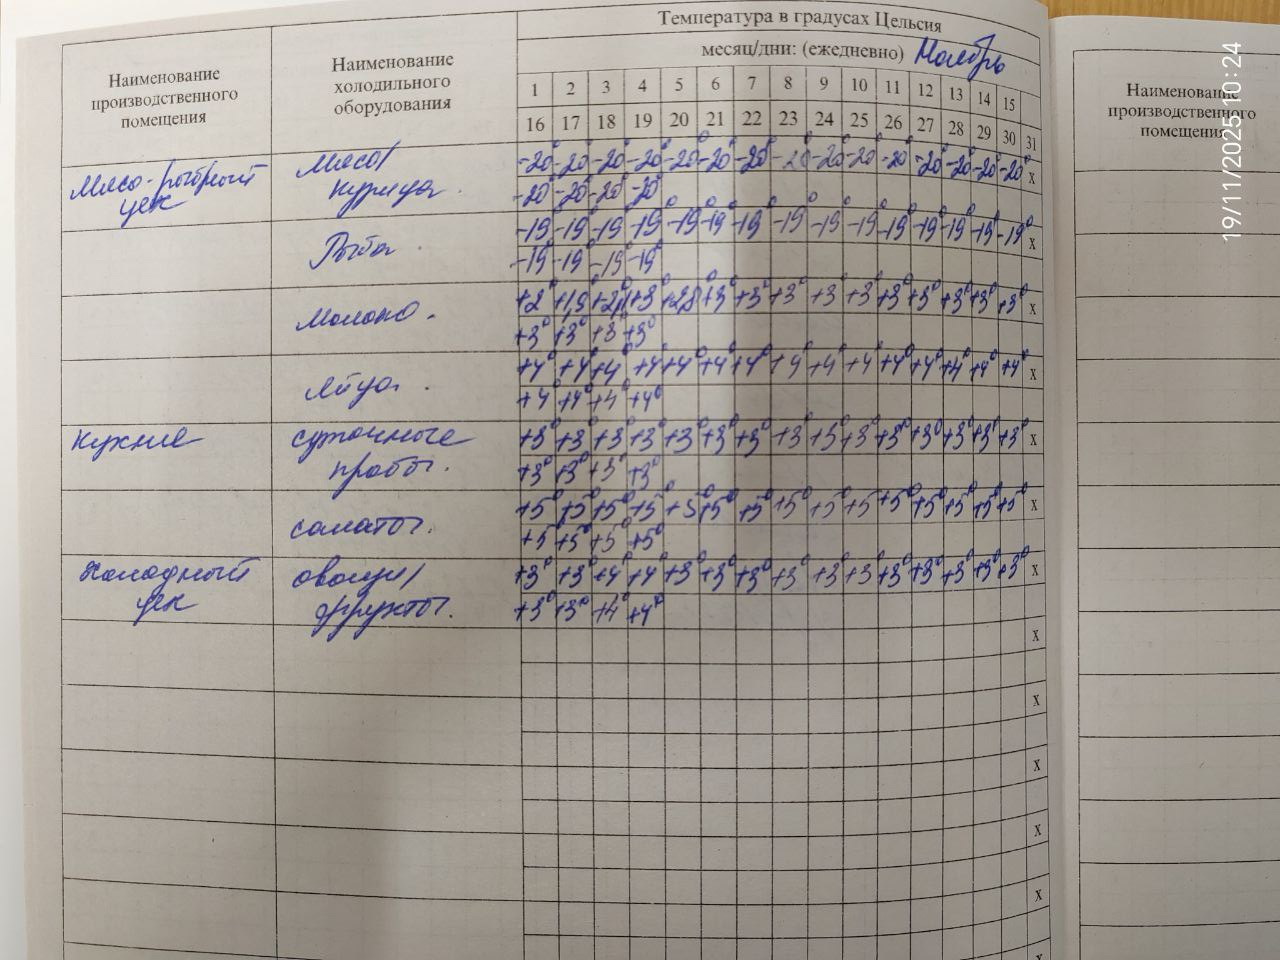 Температура в градусах Цельсия
месяц/дни: (ежедневно) Ноябрь
Наименование
производственного
помещения
Наименование
холодильного
оборудования
1 2 3 4 5 6 7 8 9 10 11 12 13 14 15
16 17 18 19 20 21 22 23 24 25 26 27 28 29 30 31
Мясо-рыбный
цех
Мясо/
курица
-20° -20 -20° -20° -20° -20° -20° -20° -20° -20° -20° -20° -20° -20° -20° х
-20° -20° -20° -20°
Рыба
-19 -19° -19 -19° -19° -19 -19° -19° -19° -19° -19° -19° -19° -19° -19° х
-19° -19° -19° -19°
Молоко
+3° +3° +3° +3° +3° +3° +3° +3° +3° +3° х
+3° +3° +3 +3°
Яйца
+4° +4 +4° +4° +4° +4° +4° +4° +4° +4° +4° +4° +4° +4° +4° х
+4 +4° +4° +4°
Кухня
суточные
пробы
+3° +3 +3° +3° +3° +3° +3° +3° +3° +3° +3° +3° +3° +3° +3° х
+3° +3° +3° +3°
салаты
+5° +5° +5° +5° +5° +5° +5° +5° +5° +5 +5° +5° +5° +5° +5° х
+5 +5° +5° +5°
Холодный
цех
овощи/
фрукты
+3° +3° +4° +4° +3° +3° +3° +3° +3° +3 +3° +3° +3° +3° +3° х
+3° +3° +4° +4°
х
х
х
х
х
х
Наименование
производственного
помещения
19/11/2025 10:24